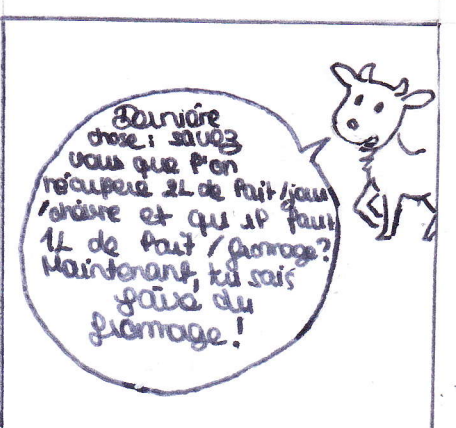 Dernière
chose : savez
vous que l'on
récupere 2L de lait/jour
/chèvre et qu'il faut
1L de lait / fromage ?
Maintenant, tu sais
faire du
fromage !